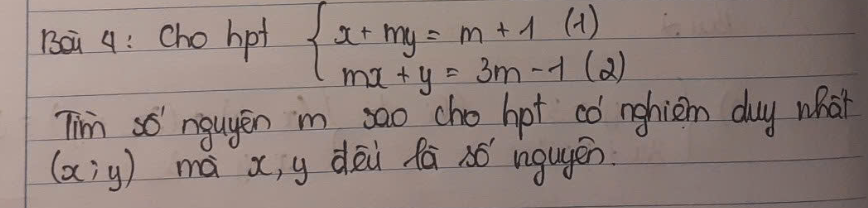 Bài 4: Cho hpt { x + my = m + 1 (1)
mx + y = 3m - 1 (2)
Tìm số nguyên m sao cho hpt có nghiệm duy nhất
(x; y) mà x, y đều là số nguyên.